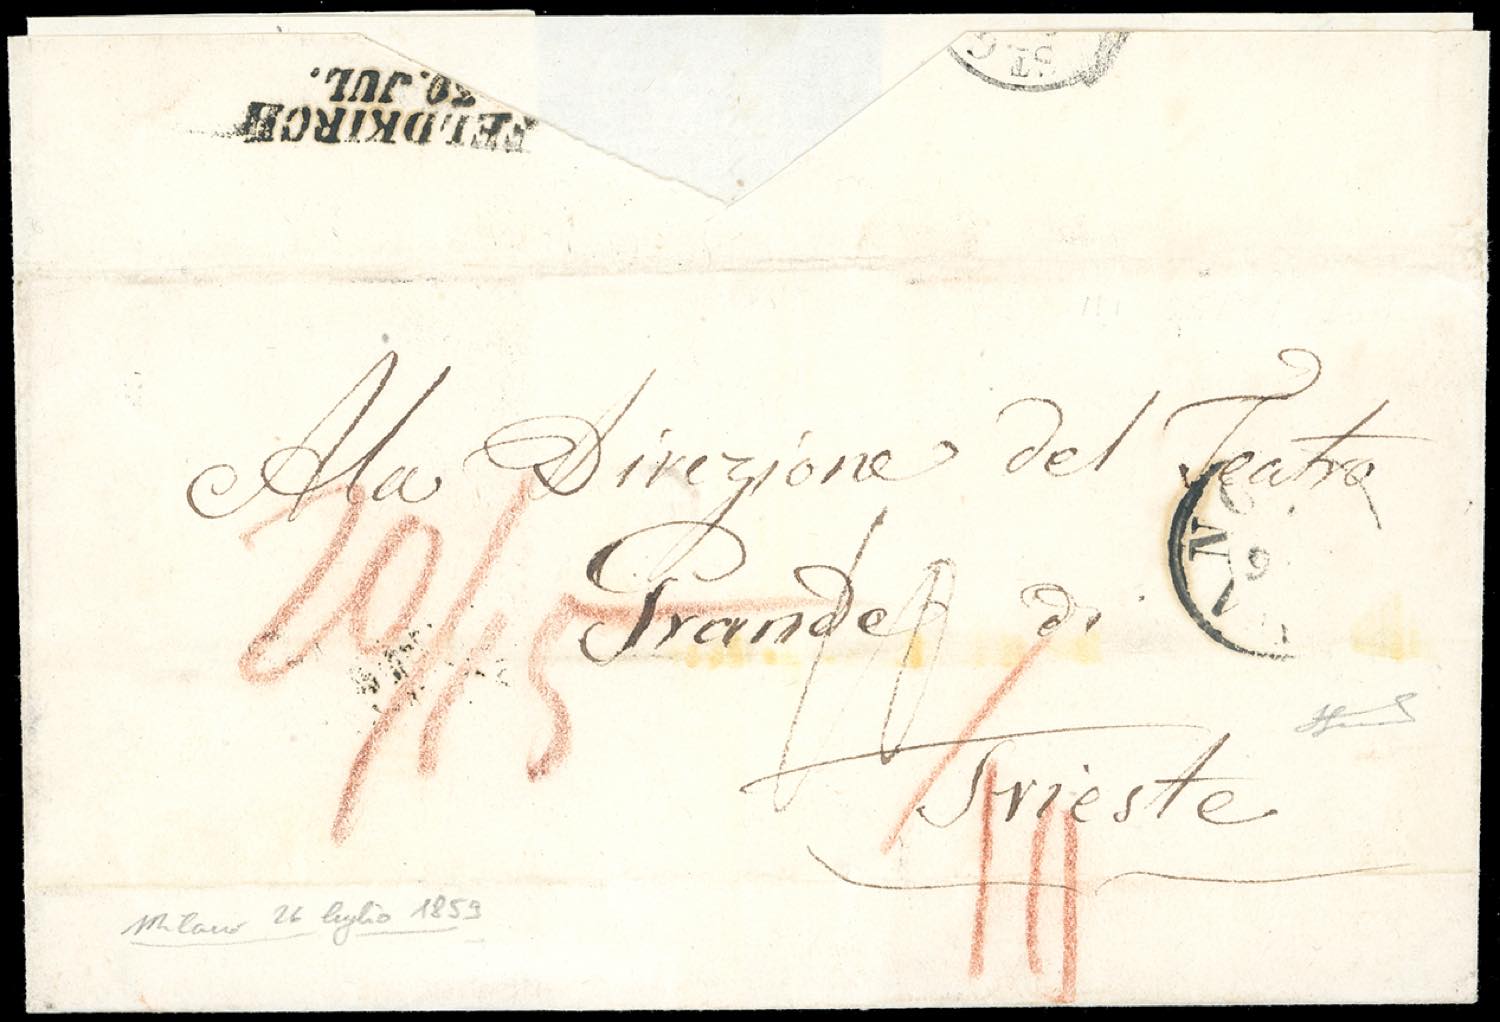 FELDKIRCH
30. JUL.
ST. G
Ala Direzione del Teatro
Grande di
Trieste
20/45
Milano 26 luglio 1859